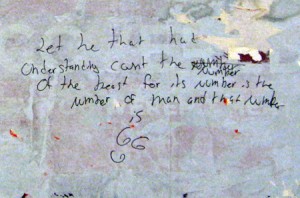 Let he that hat
Understanding count the number
Of the beast for its number is the
number of man and that number
is
666